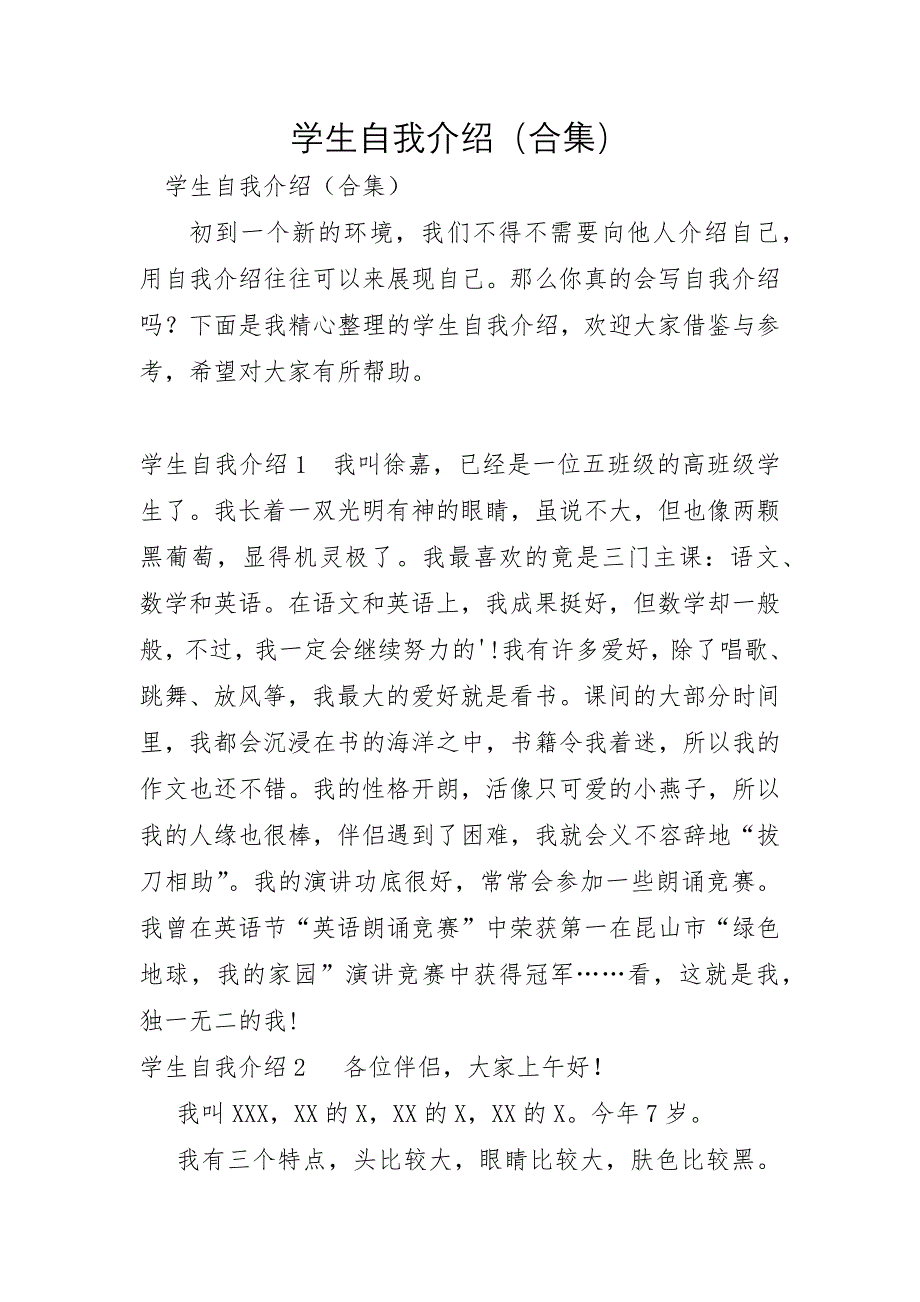 学生自我介绍（合集）
学生自我介绍（合集）
初到一个新的环境，我们不得不需要向他人介绍自己，
用自我介绍往往可以来展现自己。那么你真的会写自我介绍
吗？下面是我精心整理的学生自我介绍，欢迎大家借鉴与参
考，希望对大家有所帮助。
学生自我介绍1 我叫徐嘉，已经是一位五班级的高班级学
生了。我长着一双光明有神的眼睛，虽说不大，但也像两颗
黑葡萄，显得机灵极了。我最喜欢的竟是三门主课：语文、
数学和英语。在语文和英语上，我成果挺好，但数学却一般
般，不过，我一定会继续努力的'!我有许多爱好，除了唱歌、
跳舞、放风筝，我最大的爱好就是看书。课间的大部分时间
里，我都会沉浸在书的海洋之中，书籍令我着迷，所以我的
作文也还不错。我的性格开朗，活像只可爱的小燕子，所以
我的人缘也很棒，伴侣遇到了困难，我就会义不容辞地“拔
刀相助”。我的演讲功底很好，常常会参加一些朗诵竞赛。
我曾在英语节“英语朗诵竞赛”中荣获第一在昆山市“绿色
地球，我的家园”演讲竞赛中获得冠军……看，这就是我，
独一无二的我!
学生自我介绍2 各位伴侣，大家上午好！
我叫XXX，XX的X，XX的X，XX的X。今年7岁。
我有三个特点，头比较大，眼睛比较大，肤色比较黑。